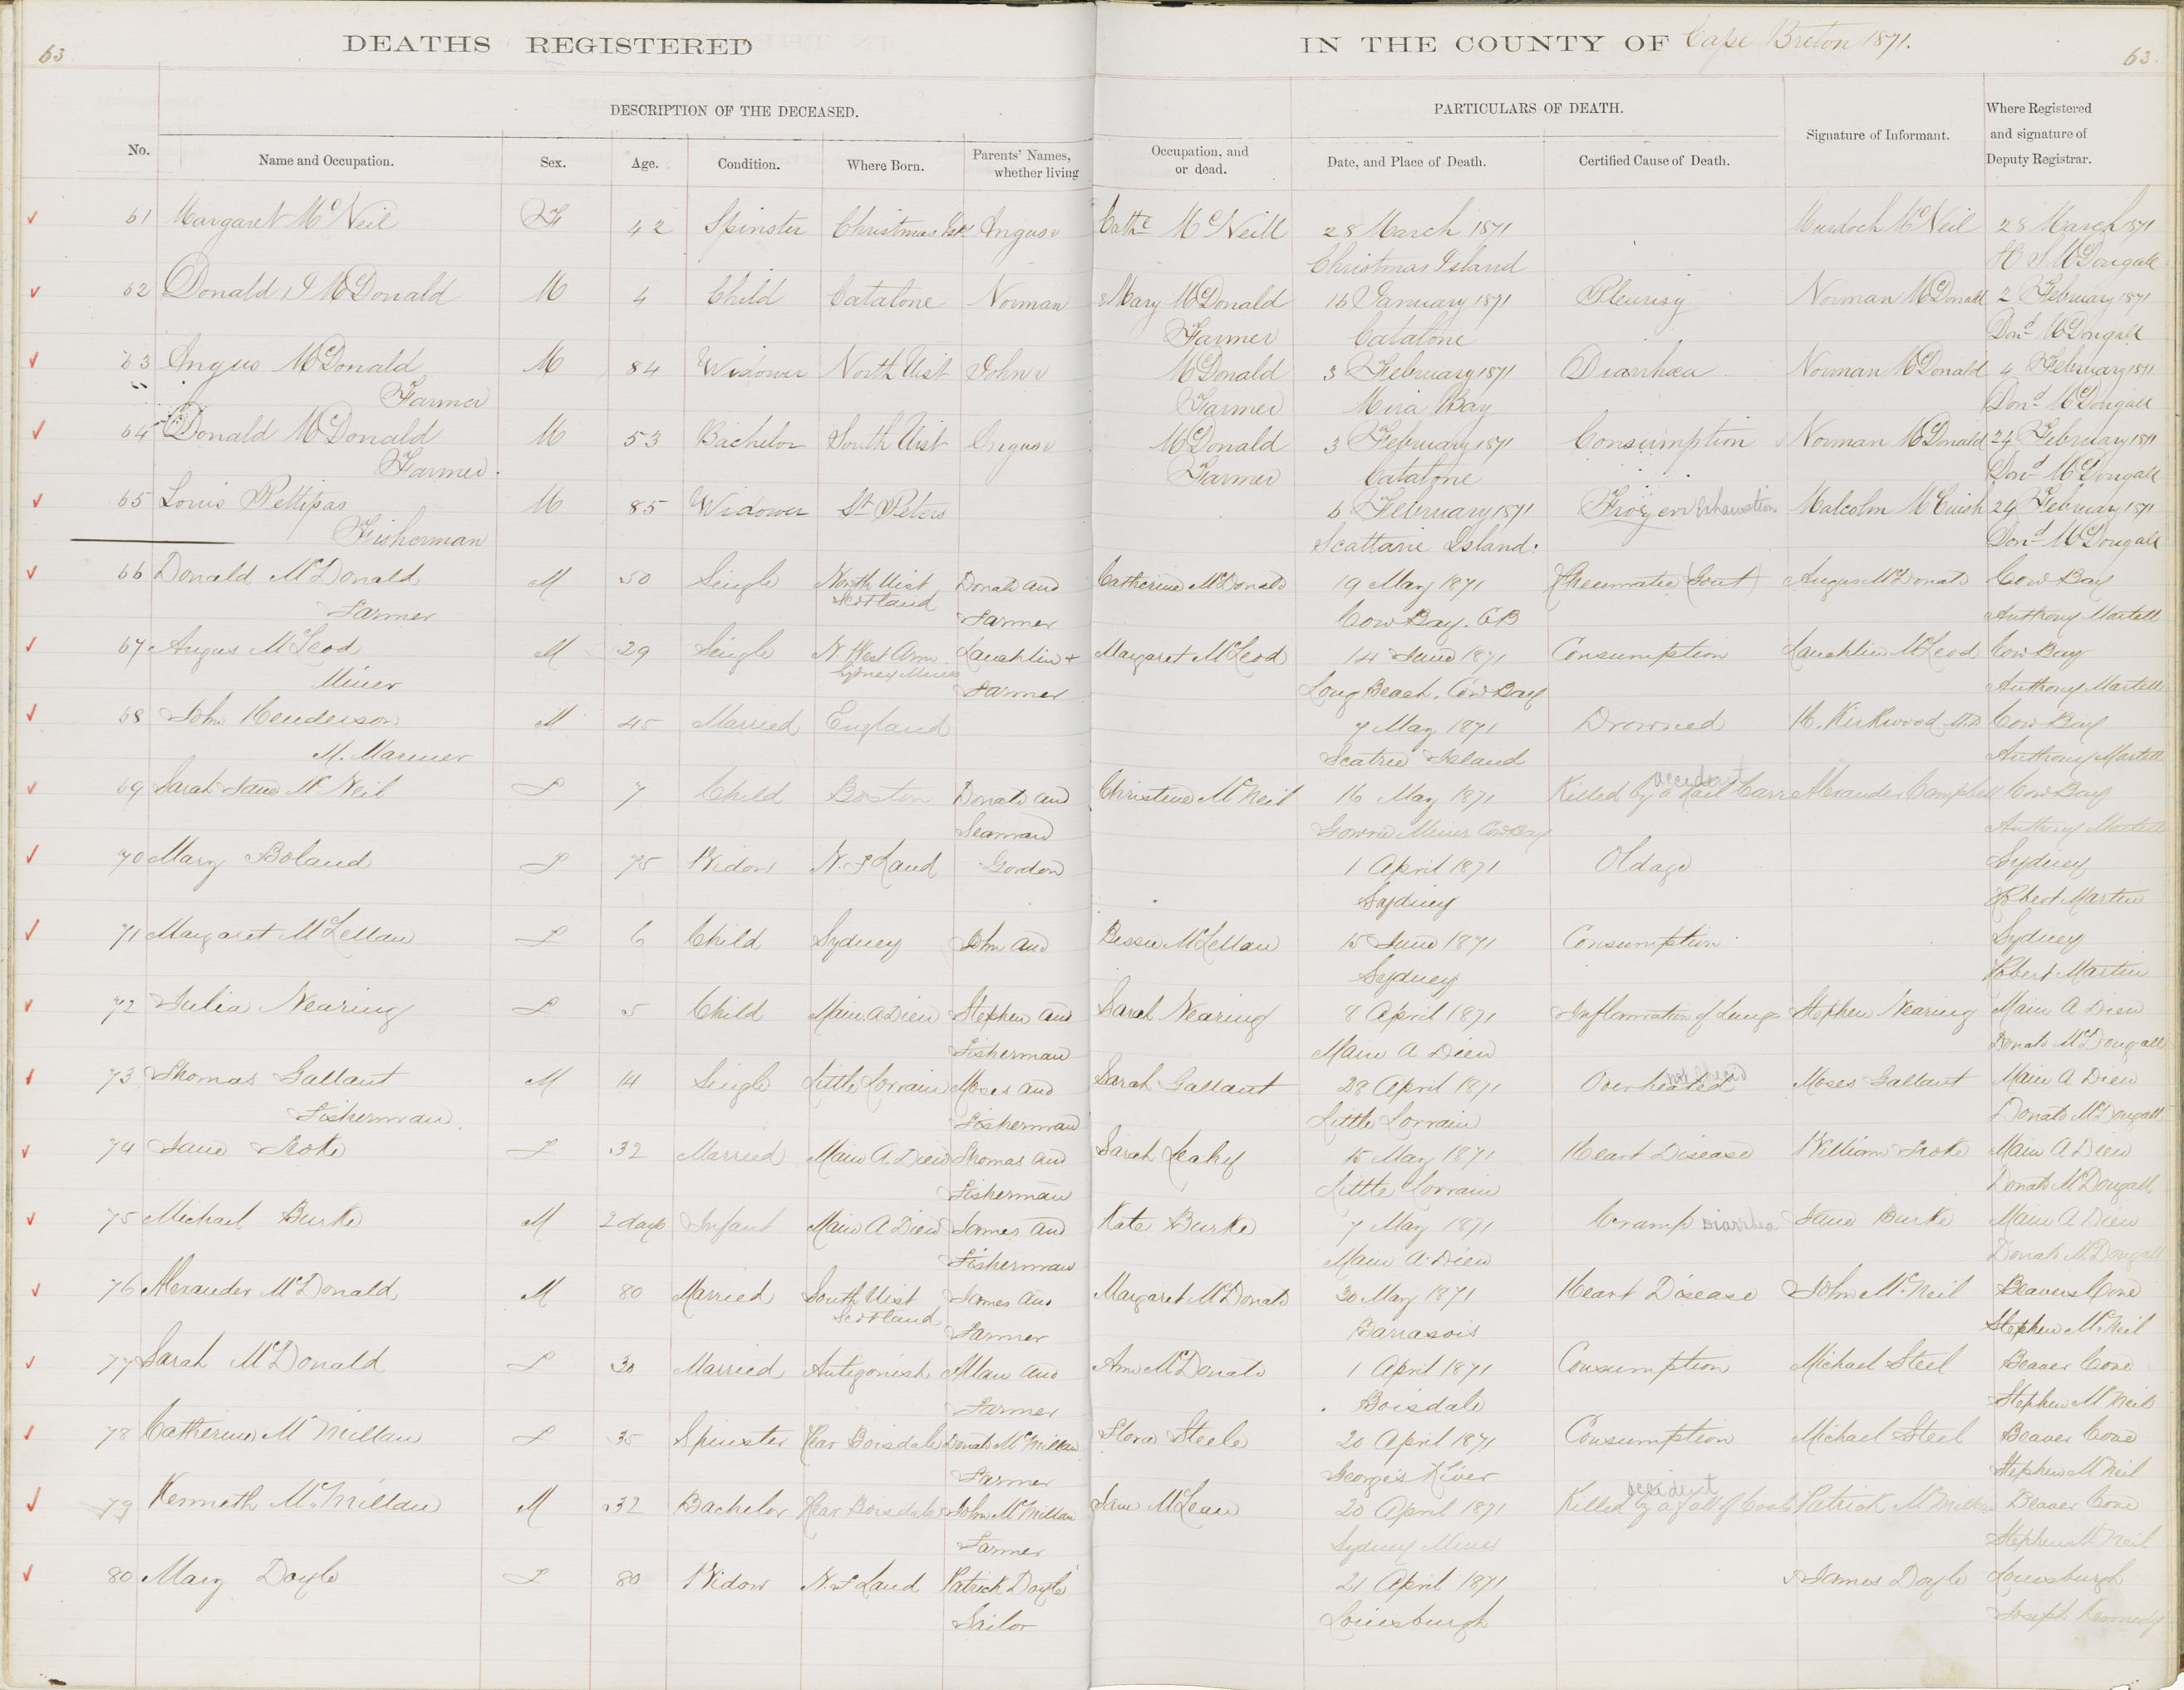 63
DEATHS REGISTERED
IN THE COUNTY OF Cape Breton 1871.
63.
DESCRIPTION OF THE DECEASED.
PARTICULARS OF DEATH.
No. Name and Occupation. Sex. Age. Condition. Where Born. Parents' Names, whether living Occupation, and or dead. Date, and Place of Death. Certified Cause of Death. Signature of Informant. Where Registered and signature of Deputy Registrar.
61 Margaret McNeil F 42 Spinster Christmas Isld Angus & Cathe McNeill 28 March 1871 Murdoch McNeil 28 March 1871
Christmas Island H S McDougall
62 Donald J McDonald M 4 Child Catalone Norman & Mary McDonald 16 January 1871 Pleurisy Norman McDonald 2 February 1871
Farmer Catalone Dond McDougall
63 Angus McDonald M 84 Widower North Uist John & McDonald 3 February 1871 Diarrhœa Norman McDonald 4 February 1871
Farmer Farmer Mira Bay Dond McDougall
64 Donald McDonald M 53 Bachelor South Uist Angus & McDonald 3 February 1871 Consumption Norman McDonald 24 February 1871
Farmer. Farmer Catalone Dond McDougall
65 Louis Pettipas M 85 Widower St Peters 6 February 1871 Frozen exhaustion Malcolm McCuish 24 February 1871
Fisherman Scattarie Island. Dond McDougall
66 Donald McDonald M 50 Single North Uist Donald and Catherine McDonald 19 May 1871 Rheumatic Gout Angus McDonald Cow Bay
Farmer Scotland Farmer Cow Bay. CB Anthony Martell
67 Angus McLeod M 29 Single N West Arm Lauchlin + Margaret McLeod 14 June 1871 Consumption Lauchlin McLeod Cow Bay
Miner Sydney Mines Farmer Long Beach. Cow Bay Anthony Martell
68 John Henderson M 45 Married England 7 May 1871 Drowned H. Kirkwood M.D Cow Bay
M. Mariner Scatrie Island Anthony Martell
69 Sarah Jane McNeil F 7 Child Boston Donald and Christine McNeil 16 May 1871 Killed by a Rail Carr accident Alexander Campbell Cow Bay
Seaman Gowrie Mines Cow Bay Anthony Martell
70 Mary Boland F 75 Widow N.F.Land Gordon 1 April 1871 Old age Sydney
Sydney Robert Martin
71 Margaret McLellan F 6 Child Sydney John and Bessie McLellan 15 June 1871 Consumption Sydney
Sydney Robert Martin
72 Julia Nearing F 5 Child Main A Dieu Stephen and Sarah Nearing 8 April 1871 Inflamation of Lungs Stephen Nearing Main A Dieu
Fisherman Main A Dieu Donald McDougall
73 Thomas Gallant M 14 Single Little Lorrain Moses and Sarah Gallant 28 April 1871 Overheated Moses Gallant Main A Dieu
Fisherman Fisherman Little Lorrain Donald McDougall
74 Jane Troke F 32 Married Main A Dieu Thomas and Sarah Leahy 15 May 1871 Heart Disease William Troke Main A Dieu
Fisherman Little Lorrain Donald McDougall
75 Michael Burke M 2 days Infant Main A Dieu James and Kate Burke 7 May 1871 Cramp Diarrhea Jane Burke Main A Dieu
Fisherman Main A Dieu Donald McDougall
76 Alexander McDonald M 80 Married South Uist James and Margaret McDonald 30 May 1871 Heart Disease John McNeil Beavers Cove
Scotland Farmer Barrasois Stephen McNeil
77 Sarah McDonald F 30 Married Antigonish Allan and Ann McDonald 1 April 1871 Consumption Michael Steel Beaver Cove
Farmer Boisdale Stephen McNeil
78 Catherine McMillan F 35 Spinster Rear Boisdale Donald McMillan Flora Steele 20 April 1871 Consumption Michael Steel Beaver Cove
Farmer Georges River Stephen McNeil
79 Kenneth McMillan M 32 Bachelor Rear Boisdale John McMillan Jane McLean 20 April 1871 Killed by a fall of Coals accident Patrick McMillan Beaver Cove
Farmer Sydney Mines Stephen McNeil
80 Mary Doyle F 80 Widow N.F.Land Patrick Doyle 21 April 1871 James Doyle Louisburgh
Sailor Louisburgh Joseph Kennedy